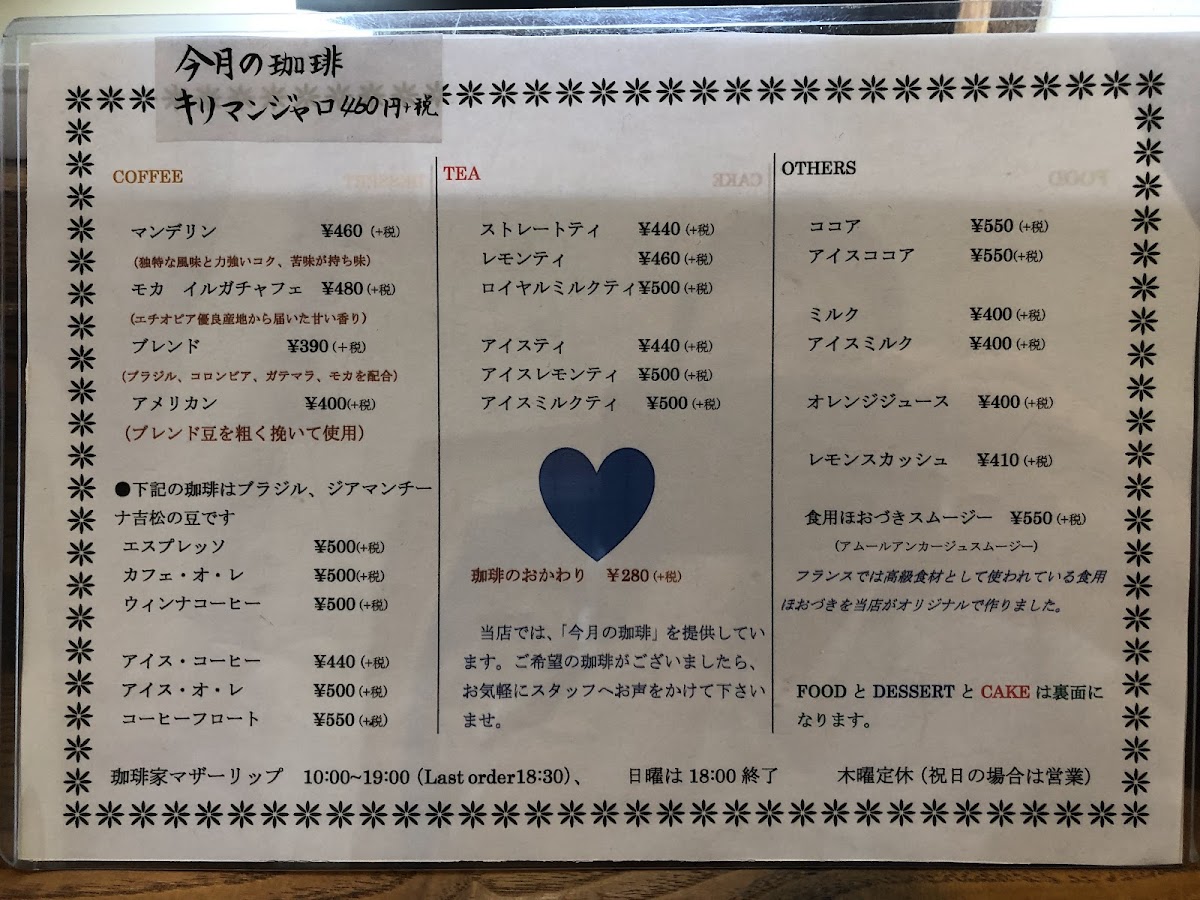 今月の珈琲
キリマンジャロ460円+税
COFFEE
マンデリン ¥460 (+税)
(独特な風味と力強いコク、苦味が持ち味)
モカ イルガチャフェ ¥480(+税)
(エチオピア優良産地から届いた甘い香り)
ブレンド ¥390(+税)
(ブラジル、コロンビア、ガテマラ、モカを配合)
アメリカン ¥400(+税)
(ブレンド豆を粗く挽いて使用)
●下記の珈琲はブラジル、ジアマンチー
ナ吉松の豆です
エスプレッソ ¥500(+税)
カフェ・オ・レ ¥500(+税)
ウィンナコーヒー ¥500(+税)
アイス・コーヒー ¥440(+税)
アイス・オ・レ ¥500(+税)
コーヒーフロート ¥550(+税)
TEA
ストレートティ ¥440(+税)
レモンティ ¥460(+税)
ロイヤルミルクティ¥500(+税)
アイスティ ¥440(+税)
アイスレモンティ ¥500(+税)
アイスミルクティ ¥500(+税)
珈琲のおかわり ¥280(+税)
当店では、「今月の珈琲」を提供してい
ます。ご希望の珈琲がございましたら、
お気軽にスタッフへお声をかけて下さい
ませ。
OTHERS
ココア ¥550(+税)
アイスココア ¥550(+税)
ミルク ¥400(+税)
アイスミルク ¥400(+税)
オレンジジュース ¥400(+税)
レモンスカッシュ ¥410(+税)
食用ほおづきスムージー ¥550(+税)
(アムールアンカージュスムージー)
フランスでは高級食材として使われている食用
ほおづきを当店がオリジナルで作りました。
FOODとDESSERTとCAKEは裏面に
なります。
珈琲家マザーリップ 10:00~19:00(Last order18:30)、 日曜は18:00終了 木曜定休(祝日の場合は営業)